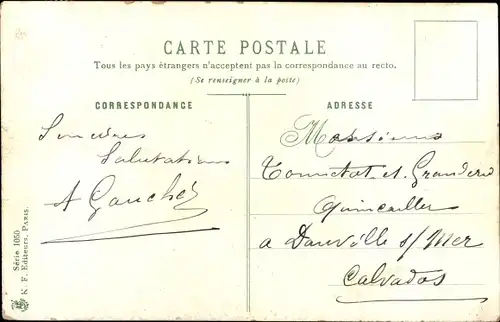 CARTE POSTALE
Tous les pays étrangers n'acceptent pas la correspondance au recto.
(Se renseigner à la poste)
CORRESPONDANCE
Sincères
Salutations
A Gauchet
ADRESSE
Messieurs
et
Quincailler
a Dauville s/ Mer
Calvados
Série 1050
K. F. Editeurs, PARIS.